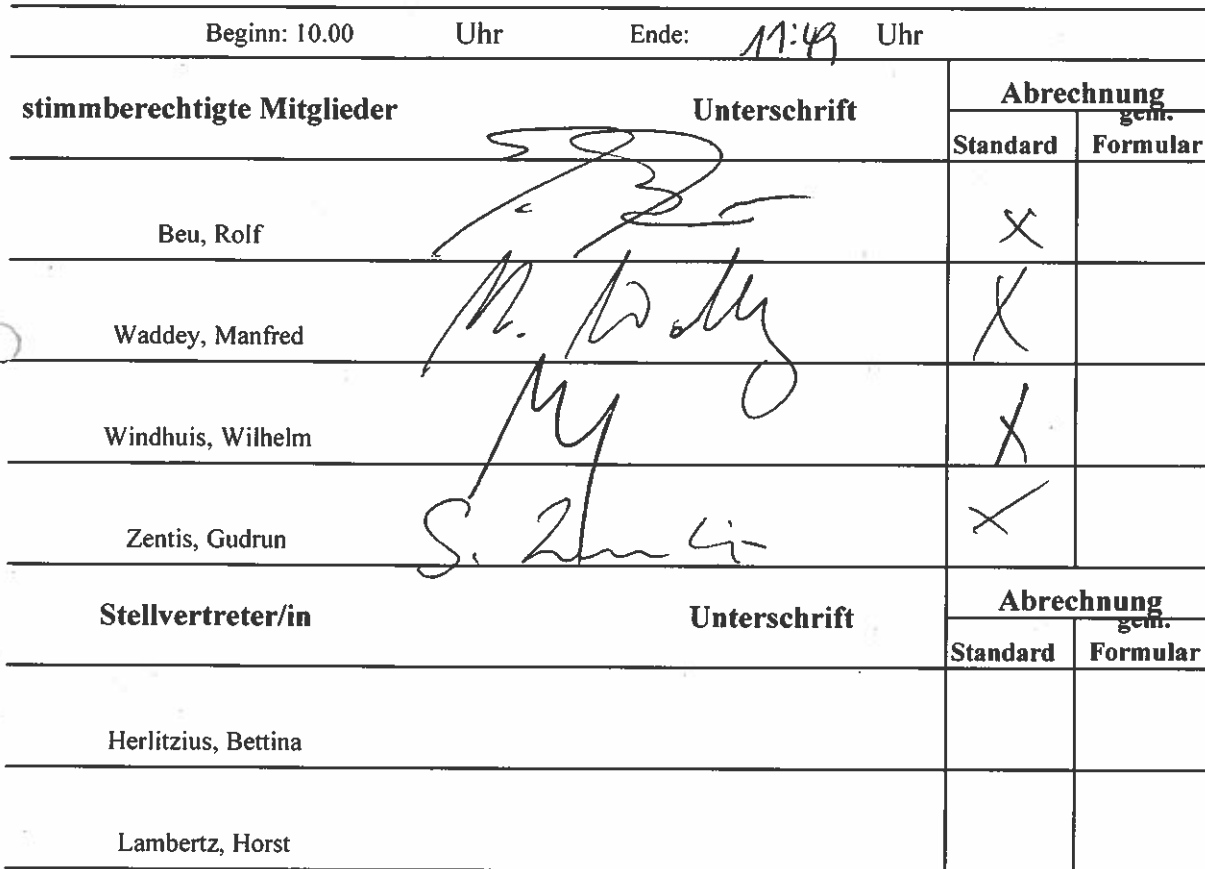 Beginn: 10.00 Uhr Ende: 11:49 Uhr
stimmberechtigte Mitglieder Unterschrift Abrechnung
Standard gem. Formular
Beu, Rolf X
Waddey, Manfred X
Windhuis, Wilhelm X
Zentis, Gudrun X
Stellvertreter/in Unterschrift Abrechnung
Standard gem. Formular
Herlitzius, Bettina
Lambertz, Horst